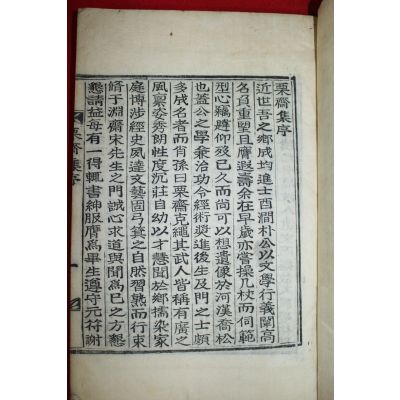 栗齋集序
近世吾之鄉成均進士酉澗朴公以文學行義闡高
名負重望且膺遐壽余狂早歲亦嘗操几杖而伺範
型心竊慕仰殁已久而尚可以想遺像於河漢喬松
也盖公之學兼治功令經術奬進後生及門之士頗
多成名者而肖孫曰栗齋克繩其武人皆稱有廣之
風稟姿秀朗性度沉莊自幼以才慧聞於鄉擩染家
庭博涉經史夙達文藝固弓箕之自然習熟而行束
脩于淵齋宋先生之門誠心求道與聞爲己之方懇
懇請益每有一得輒書紳服膺爲畢生遵守元符謝
栗齋集序
一